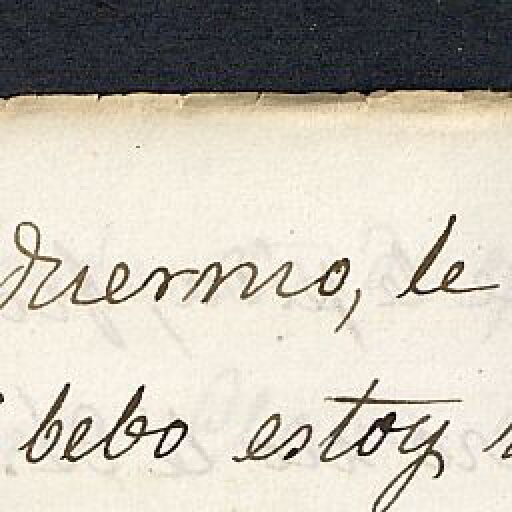 duermo, le
bebo estoy